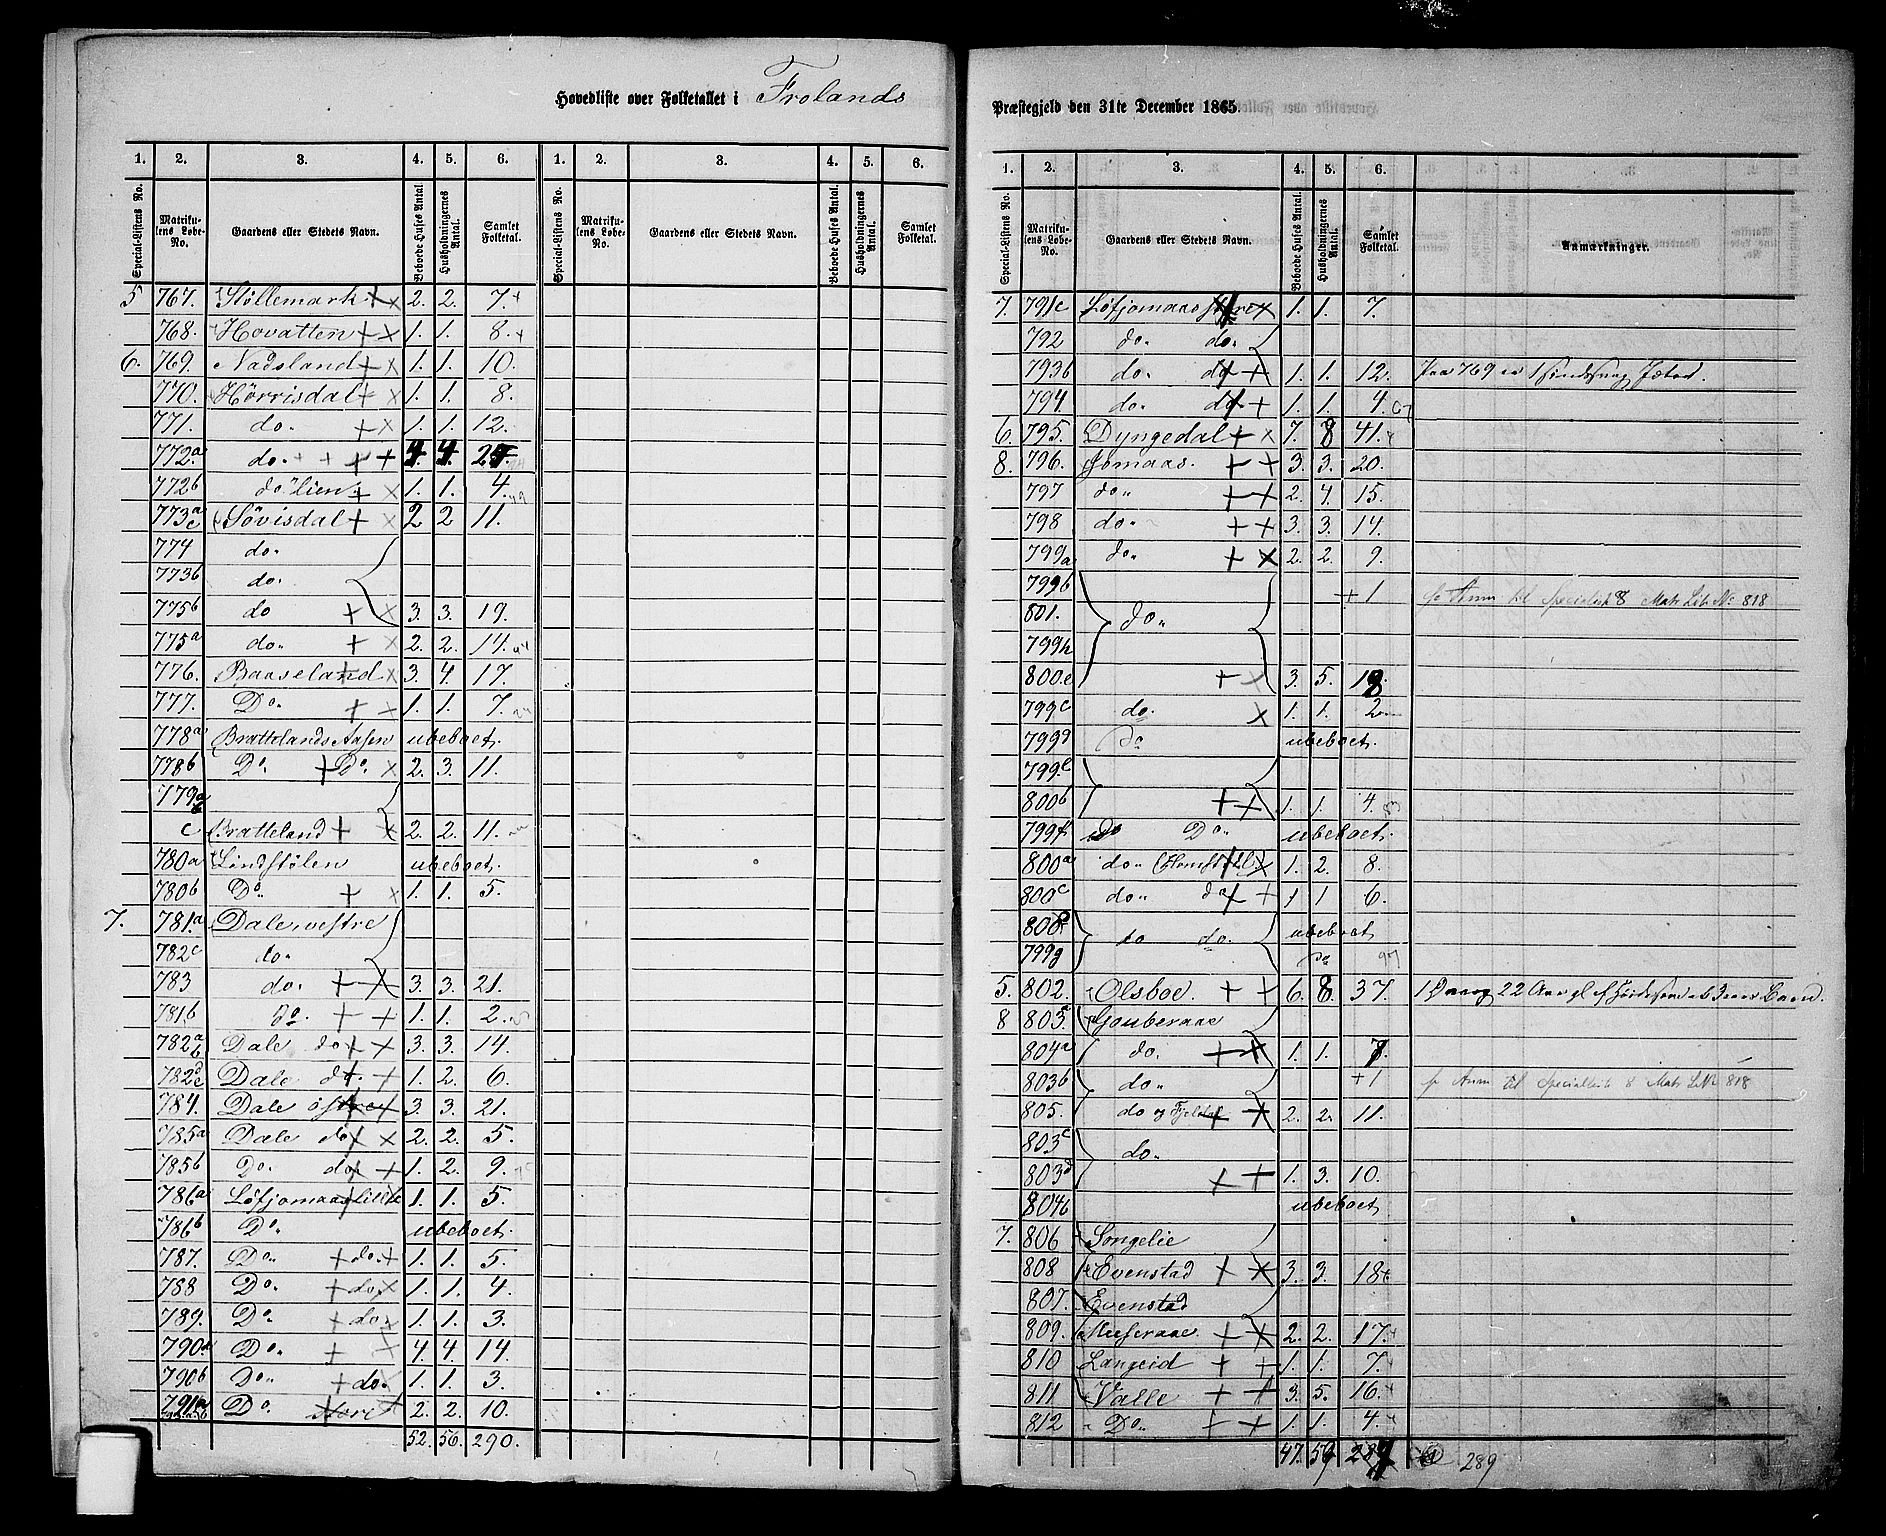 Hovedliste over Folketallet i Frolands
1. 2. 3. 4. 5. 6. 1. 2. 3. 4. 5. 6.
Special-Listens No. Matrikulens Løbe-No. Gaardens eller Stedets Navn. Beboede Huses Antal. Husholdningernes Antal. Samlet Folketal. Special-Listens No. Matrikulens Løbe-No. Gaardens eller Stedets Navn. Beboede Huses Antal. Husholdningernes Antal. Samlet Folketal.
5 767. Støllemark + × 2. 2. 7.
768. Hovatten + × 1. 1. 8.
6. 769. Nadsland + × 1. 1. 10.
770. Hørrisdal + × 1. 1. 8.
771. do. + × 1. 1. 12.
772a do. + + + + 4. 4.
772b do Lien + × 1. 1. 4.
773a c Søvisdal + × 2 2 11.
774 do.
773b do.
775b do + × 3. 3. 19.
775a do. + × 2. 2. 14.
776. Baaseland + × 3. 4. 17.
777. Do. + × 1. 1. 7.
778a Brattelands Aasen ubeboet.
778b Do. + Do. × 2. 3. 11.
779a
c Bratteland + × 2. 2. 11.
780a Lindstølen ubeboet.
780b Do + × 1. 1. 5.
7. 781a Dale, vestre
782c do.
783 do. + × 3. 3. 21.
781b do. + + 1. 1. 2.
782a b Dale do + × 3. 3. 14.
782d e Dale do. + 1. 2. 6.
784. Dale østre × 3. 3. 21.
785a Dale do × 2. 2. 5.
785b Do. do. + 1. 2. 9.
786a Løfjomaas lille 1. 1. 5.
786b Do. ubeboet.
787. Do. + do. + 1. 1. 5.
788 Do. + do. × 1. 1. 4.
789. Do. + do. 1. 1. 3.
790a Do. + × 4. 4. 14.
790b Do. + do. 1. 1. 3.
791a Do. store 2. 2. 10.
52. 56. 290.
Præstegjeld den 31te December 1865.
1. 2. 3. 4. 5. 6.
Special-Listens No. Matrikulens Løbe-No. Gaardens eller Stedets Navn. Beboede Huses Antal. Husholdningernes Antal. Samlet Folketal. Anmærkninger.
7. 791c Løfjomaas store × 1. 1. 7.
792 do. do.
793b do. do + 1. 1. 12. Paa 769 er 1
794. do. do. + 1. 1. 4. 67
6. 795. Dyngedal + × 7. 8 41.
8. 796. Jomaas. + + 3. 3. 20.
797 do. + + 2. 4. 15.
798 do. + + 3. 3. 14.
799a do. + × 2. 2. 9.
799b + 1 Anm til Specialist 8 Matr Lib No 818
801. do.
799h
800.e + × 3. 5. 18.
799c do. × 1. 1. 2
799d Do ubeboet.
799.e
800b + + 1. 1. 4.
799f Do. ubeboet.
800a do. × 1. 2. 8.
800c do. do + + 1 1 6.
800 do do. ubeboet
799g do 97
5. 802. Olsboe. + + 6. 8. 37. 1 22 Aar gl
8 803.a Gauberaae
804a do. + + 1. 1. 7.
803b do. + 1 Anm til Specialist 8 Matr LN 818
805. do og + + 2. 2. 11.
803c do.
803d + + 1. 3. 10.
804b ubeboet.
7. 806 Songelie
808 Evenstad + × 3. 3. 18
807. Evenstad
809. Museraae. + × 2. 2. 17.
810 Langeid + + 1. 1. 7.
811 Valle + + 3. 5. 16.
812 Do. + + 1. 1. 4.
47. 59 289